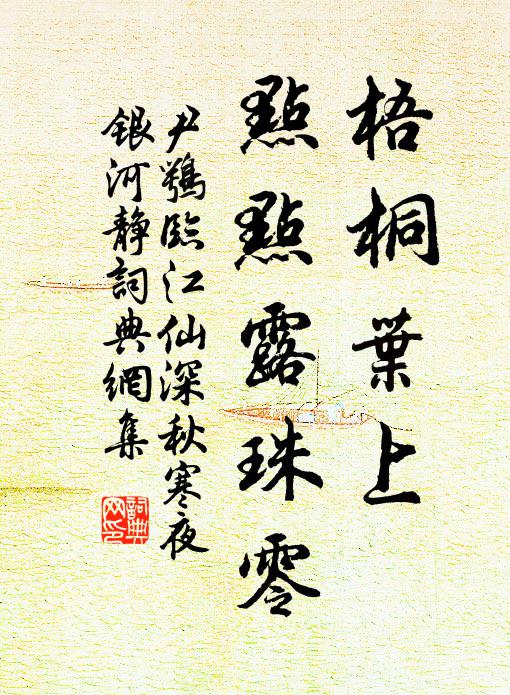 梧桐葉上
點點露珠零
尹鶚臨江仙深秋寒夜
銀河靜詞典網集
詞典
网印